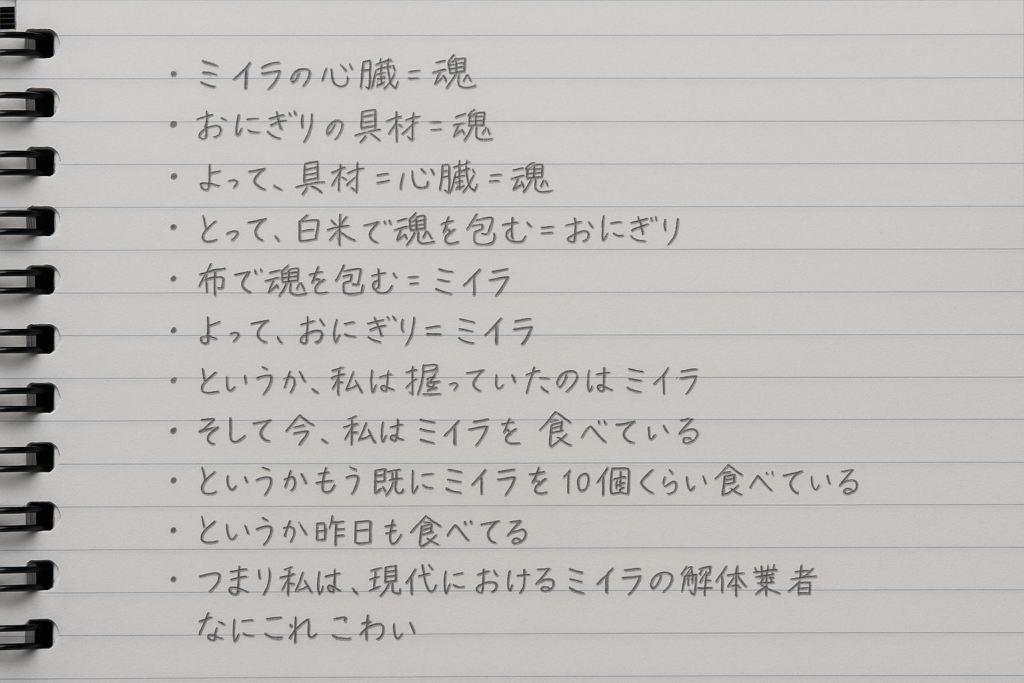 ・ミイラの心臓=魂
・おにぎりの具材=魂
・よって、具材=心臓=魂
・とって、白米で魂を包む=おにぎり
・布で魂を包む=ミイラ
・よって、おにぎり=ミイラ
・というか、私は握っていたのはミイラ
・そして今、私はミイラを食べている
・というかもう既にミイラを10個くらい食べている
・というか昨日も食べてる
・つまり私は、現代におけるミイラの解体業者
なにこれこわい